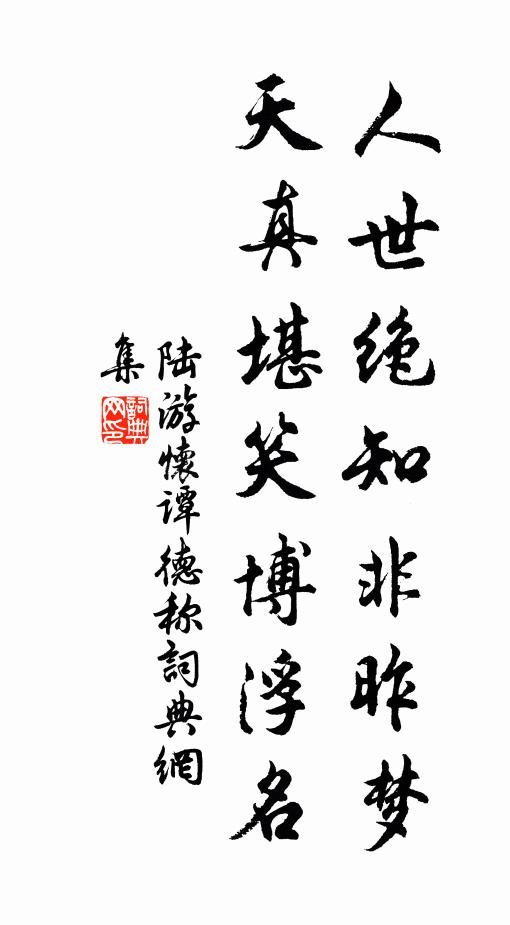 人世绝知非昨梦
天真堪笑博浮名
陆游懷谭德称詞典網
集
詞典网印